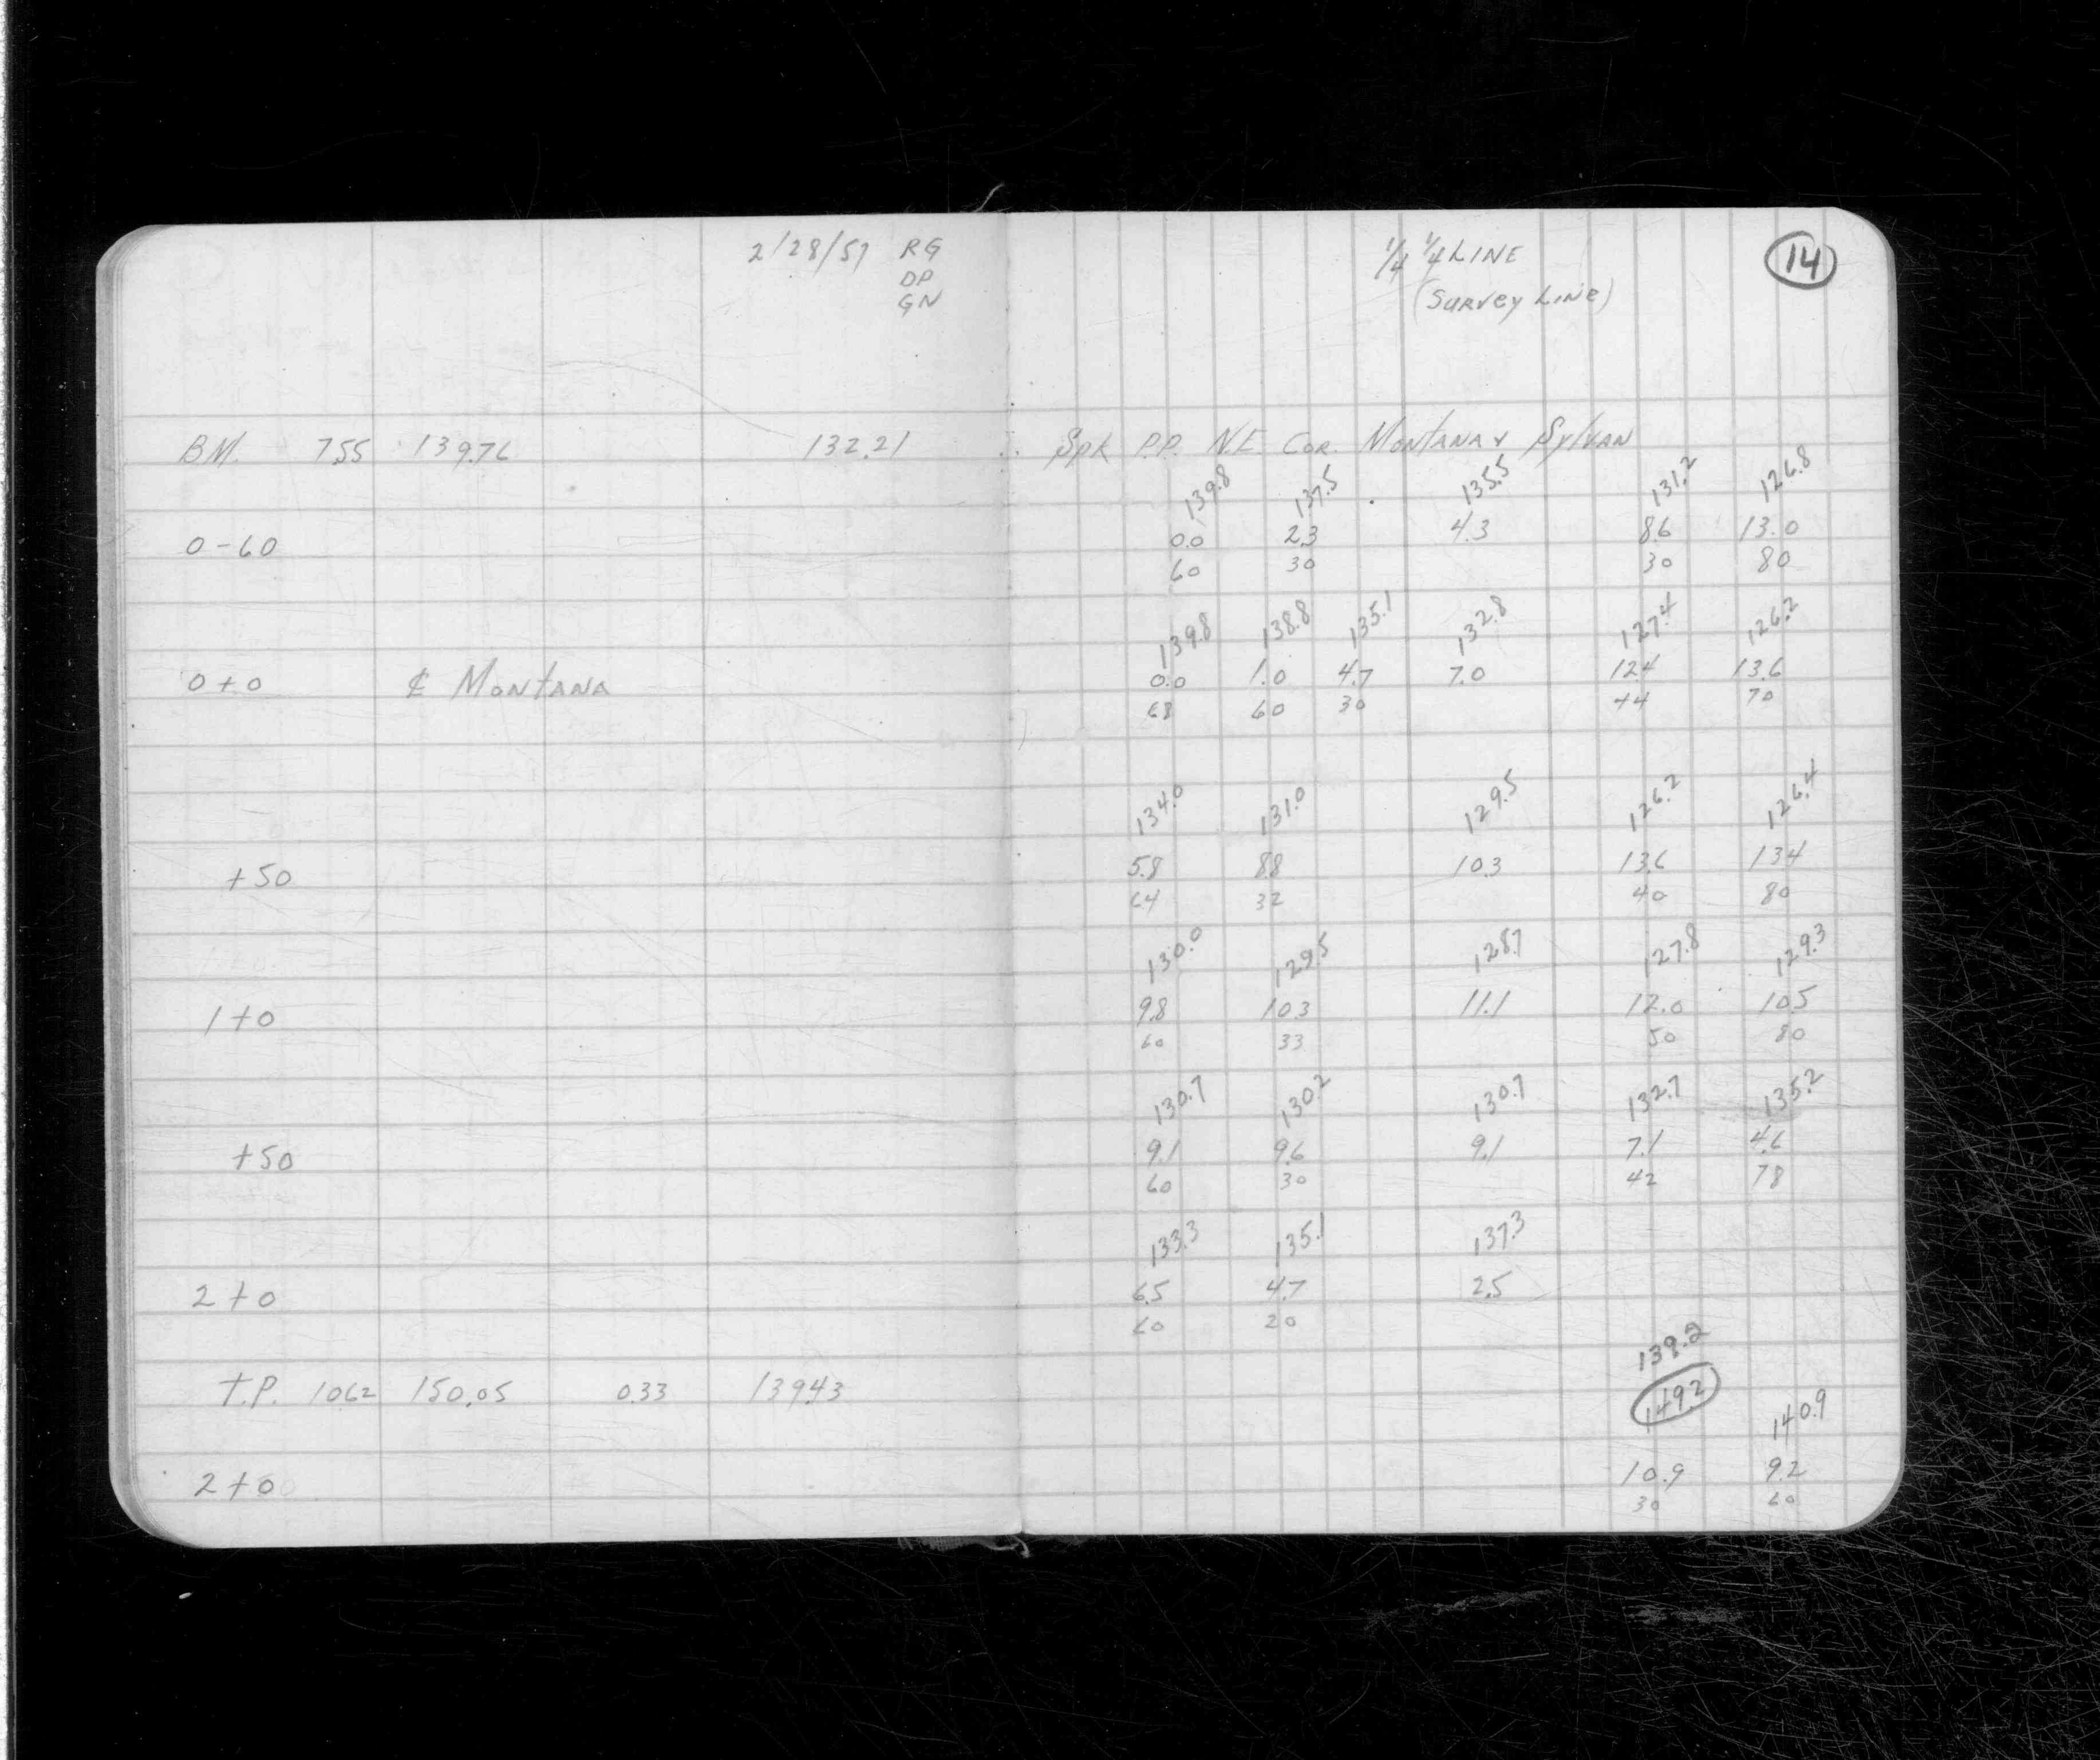 2/28/57 RG
DP
GN
1/4 1/4 LINE
(SURVEY LINE)
14
BM. 7.55 139.76 132.21 Spk P.P. N.E. COR. MONTANA & SYLVAN
139.8 137.5 135.5 131.2 126.8
0-60 0.0 2.3 4.3 8.6 13.0
60 30 30 80
139.8 138.8 135.1 132.8 127.4 126.2
0+0 ℄ MONTANA 0.0 1.0 4.7 7.0 12.4 13.6
68 60 30 44 70
134.0 131.0 129.5 126.2 126.4
+50 5.8 8.8 10.3 13.6 13.4
64 32 40 80
130.0 129.5 128.7 127.8 129.3
1+0 9.8 10.3 11.1 12.0 10.5
60 33 50 80
130.7 130.2 130.7 132.7 135.2
+50 9.1 9.6 9.1 7.1 4.6
60 30 42 78
133.3 135.1 137.3
2+0 6.5 4.7 2.5
60 20
139.2
T.P. 10.62 150.05 0.33 139.43 149.2
140.9
2+0 10.9 9.2
30 60